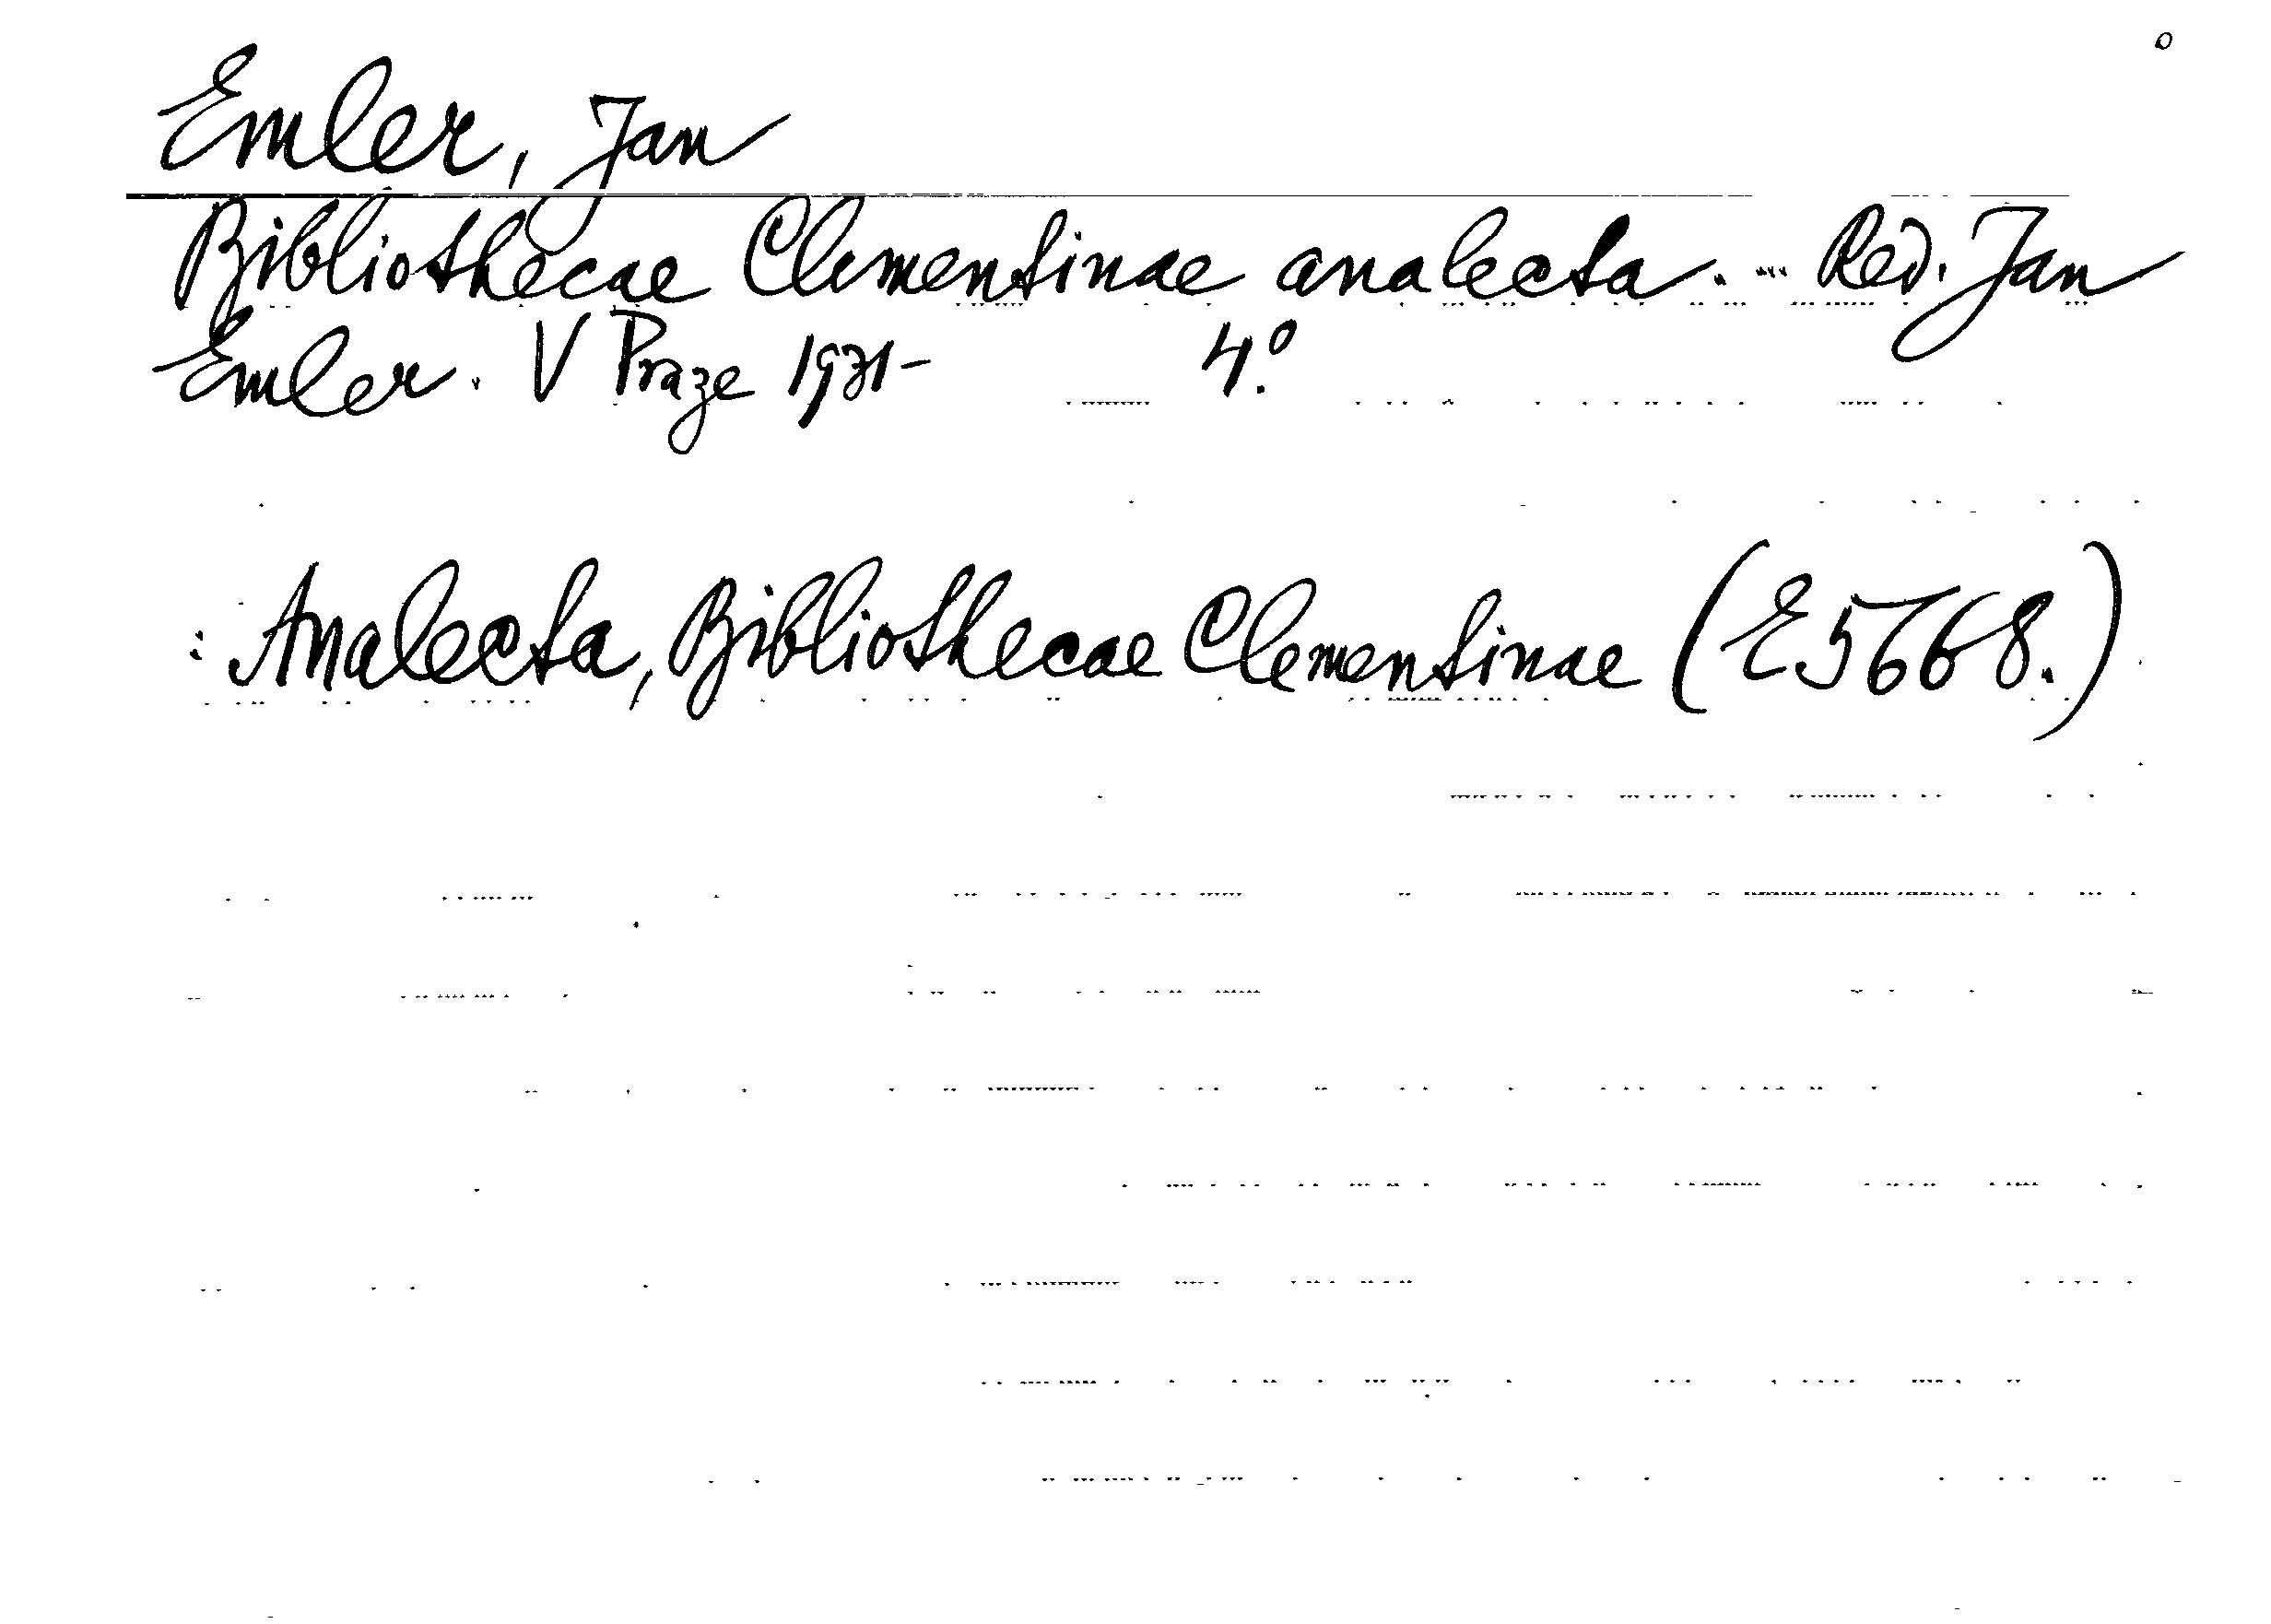 o
Emler, Jan
Bibliothecae Clementinae analecta. ... Red. Jan
Emler. V Praze 1931- 4.º
: Analecta, Bibliothecae Clementinae (E 5668.)